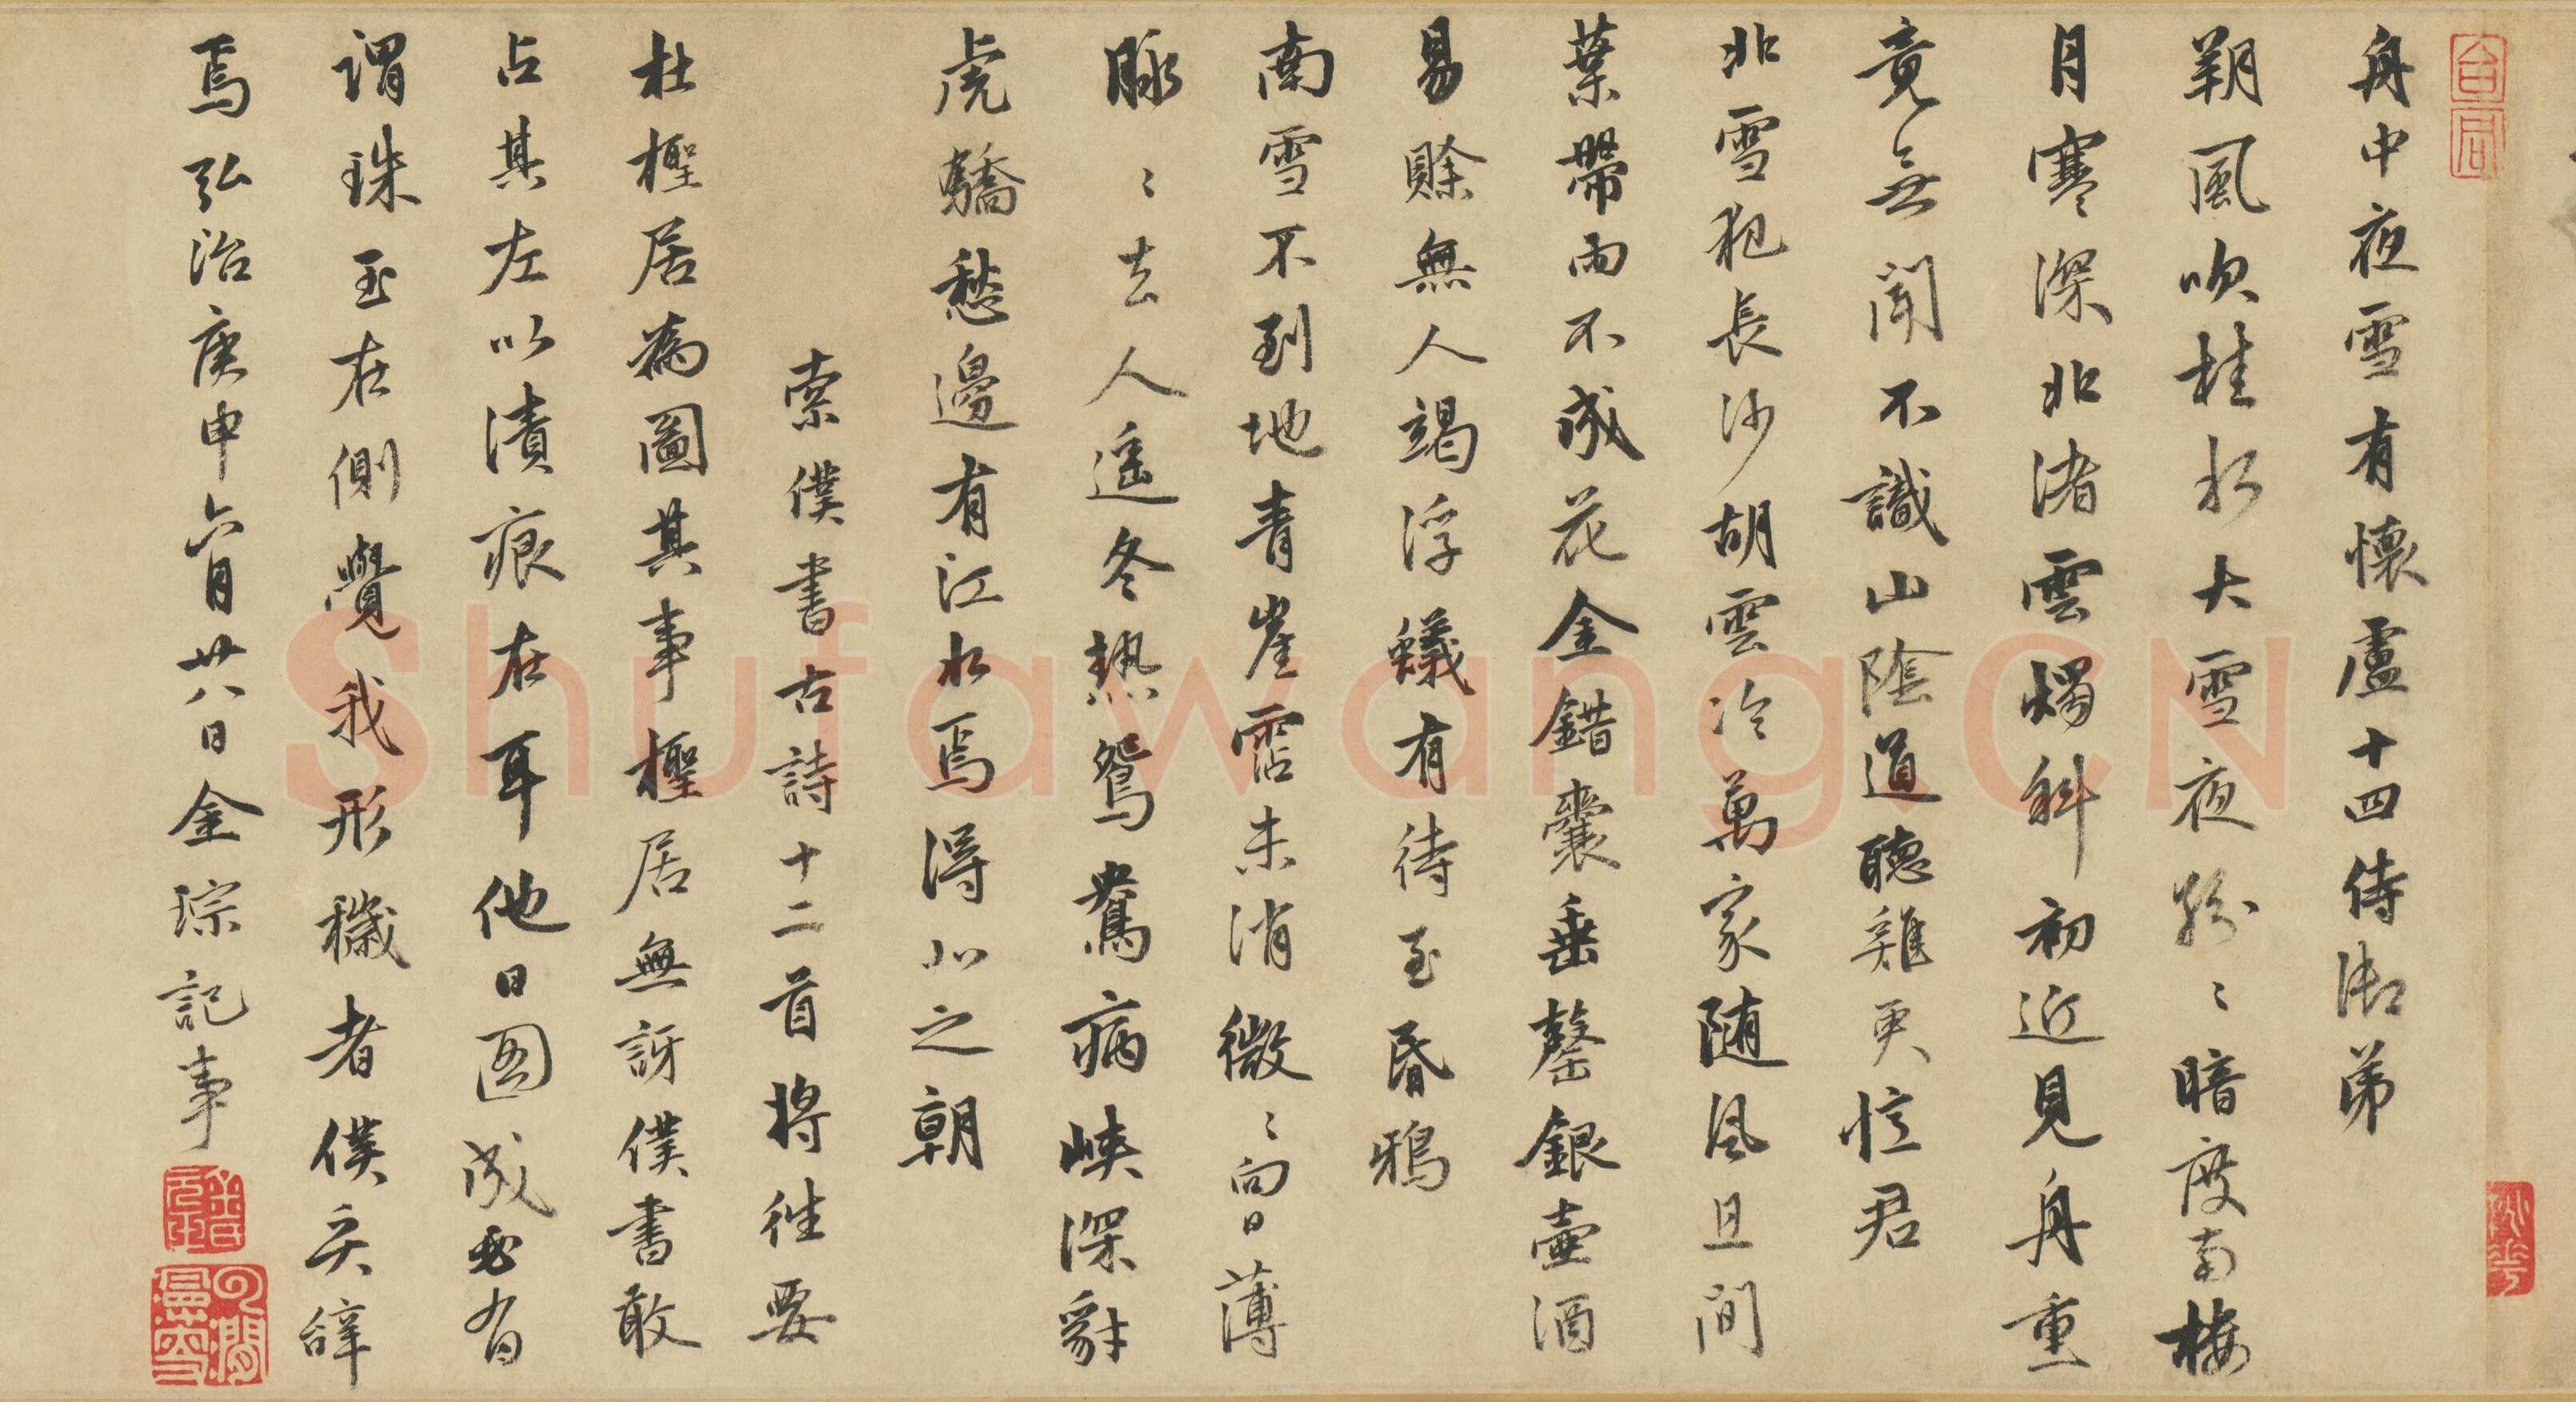 舟中夜雪有懷盧十四侍御弟
朔風吹桂水大雪夜紛〻暗度南樓
月寒深北渚雲燭斜初近見舟重
竟無聞不識山陰道聽雞更憶君
北雪犯長沙胡雲冷萬家随風且間
葉帶雨不成花金錯囊垂罄銀壺酒
易賒無人竭浮蟻有待至昏鴉
南雪不到地青崖霑未消微〻向日薄
脉〻去人遥冬熱鴛鴦病峡深豺
虎驕愁邊有江水焉得北之朝
索僕書古詩十二首将往要
杜檉居為圖其事檉居無訝僕書敢
占其左以漬痕在耳他日圖成必有
謂珠玉在側覺我形穢者僕奚辞
焉弘治庚申六月廿八日金琮記事
Shufawang.CN